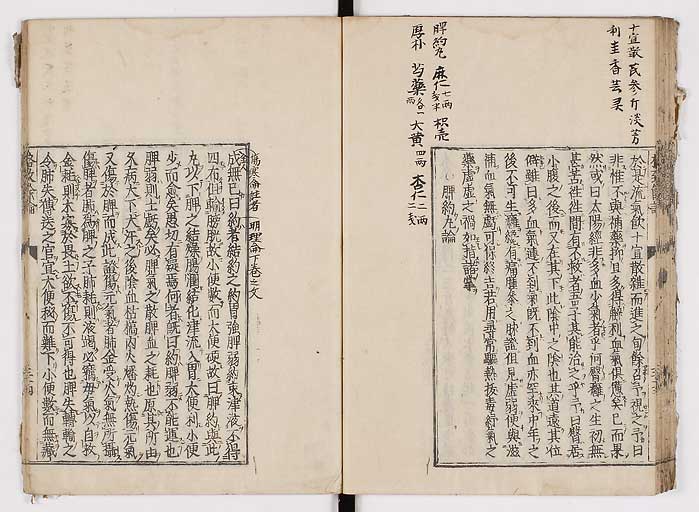 十宣散
利圭香
脾約丸 麻仁 枳壳
厚朴 芍藥 大黄四兩 杏仁二兩
於是流氣飲十宣散雜而進之旬餘召予視之予曰
非惟不與補藥抑且多得解利血氣俱憊矣已而果
然或曰太陽經非多血少氣者乎何臀癰之生初無
甚苦往往間有不救者吾子其能治之乎予曰臀居
小腹之後而又在其下此陰中之陰也其道遠其位
僻雖曰多血氣運不到氣旣不到血亦罕來中年之
後不可生癰纔有痛腫參之脉證但見虚弱便與滋
補血氣無虧可保終吉若用尋常驅熱拔毒紓氣之
藥虚虚之禍如指諸掌
脾約丸論
明理論下卷之文
成無已曰約者結約之約胃強脾弱約束津液不得
四布但輸膀胱故小便數而大便硬故曰脾約與此
丸以下脾之結燥腸潤結化津流入胃大便利小便
少而愈矣愚切有疑焉何者旣曰約脾弱不能運也
脾弱則土虧矣必脾氣之散脾血之耗也原其所由
久病大下大汗之後陰血枯槁內火燔灼熱傷元氣
又傷於脾而成此證傷元氣者肺金受火氣無所攝
傷脾者肺爲脾之子肺耗則液竭必竊母氣以自救
金耗則木寡於畏土欲不傷不可得也脾失轉輸之
令肺失傳送之官宜大便秘而難下小便數而無藏